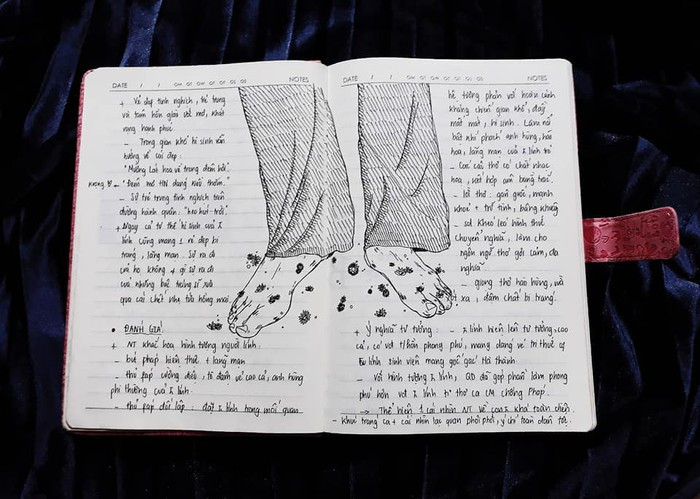 DATE / / NOTES
+ Vẻ đẹp tinh nghịch, trẻ trung
với tâm hồn giàu ước mơ, khát
vọng hạnh phúc
_ Trong gian khổ hi sinh vẫn
hướng về cái đẹp.
"Mường Lát hoa về trong đêm hơi"
"Đêm mơ HN dáng kiều thơm."
_ Sự trẻ trung tinh nghịch trên
đường hành quân: "heo hút - trời".
+ Ngay cả tư thế hi sinh của
lính cũng mang 1 vẻ đẹp bi
tráng, lãng mạn. Sự ra đi
của họ không
của những bậc tráng sĩ xưa
qua cái chết
• ĐÁNH GIÁ
+ NT khắc họa hình tượng người lính:
_ bút pháp hiện thực + lãng mạn
_ thủ pháp cường điệu, tô đậm vẻ cao cả, anh hùng
phi thường của lính
_ thủ pháp đối lập: đặt lính trong mối quan
DATE / / NOTES
hệ tương phản với hoàn cảnh
kháng chiến gian khổ, đầy
mất mát, hi sinh. Làm nổi
bật khí phách anh hùng, hào
hoa, lãng mạn của lính trẻ
_ Các câu thơ có chất nhạc
họa, kết hợp âm bằng trắc.
_ lời thơ: gân guốc, mạnh
khỏe + trữ tình, bâng khuâng
_ sd khéo léo hình thức
chuyển nghĩa, làm cho
ngôn ngữ thơ gợi cảm, đa
nghĩa
_ giọng thơ hào hùng,
xa, đậm chất bi tráng.
+ Ý nghĩa tư tưởng: _ lính hiện lên tư tưởng, cao
cả, có vẻ phong phú, mang dáng vẻ tri thức of
lính sinh viên mang gốc gác Hà thành.
_ Với hình tượng lính, QD đã góp phần làm phong
phú hơn về lính từ thơ ca CM chống Pháp.
→ Thể hiện 1 cái nhìn NT về con khá toàn diện.
- Khúc tráng ca + cái nhìn lạc quan phơi phới, ý chí